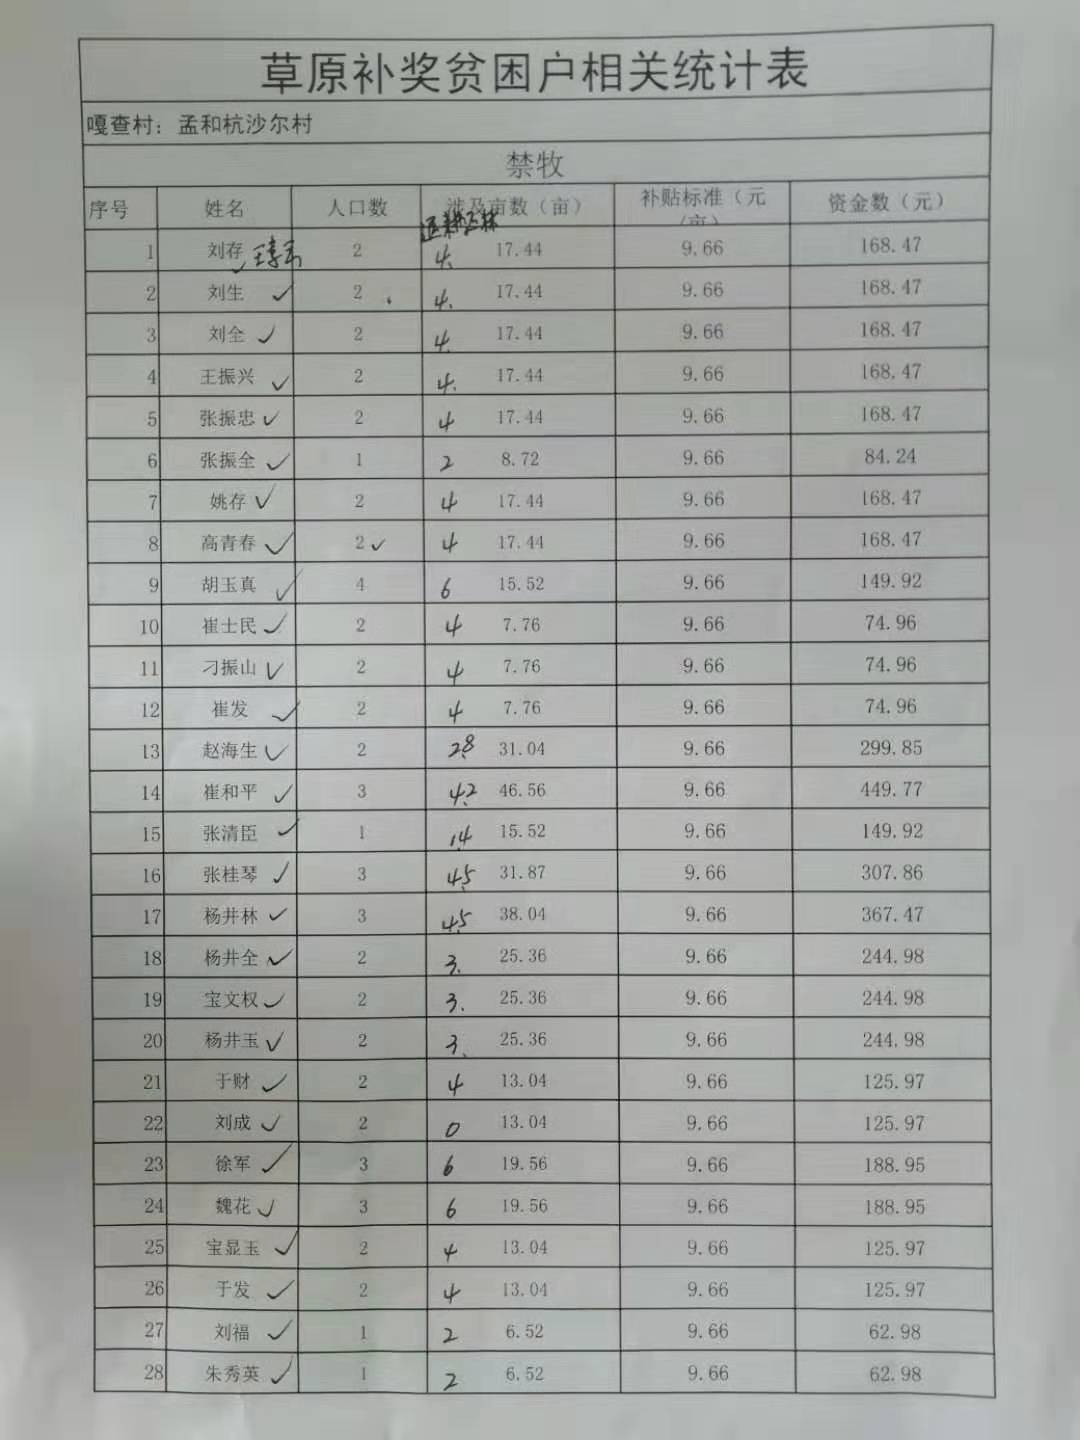 草原补奖贫困户相关统计表
嘎查村：孟和杭沙尔村
禁牧
序号 姓名 人口数 涉及亩数（亩） 补贴标准（元/亩） 资金数（元）
1 刘存 2 4. 17.44 9.66 168.47
2 刘生 ✓ 2 4. 17.44 9.66 168.47
3 刘全 ✓ 2 4. 17.44 9.66 168.47
4 王振兴 ✓ 2 4. 17.44 9.66 168.47
5 张振忠 ✓ 2 4 17.44 9.66 168.47
6 张振全 ✓ 1 2 8.72 9.66 84.24
7 姚存 ✓ 2 4 17.44 9.66 168.47
8 高青春 ✓ 2 ✓ 4 17.44 9.66 168.47
9 胡玉真 ✓ 4 6 15.52 9.66 149.92
10 崔士民 ✓ 2 4 7.76 9.66 74.96
11 刁振山 ✓ 2 4 7.76 9.66 74.96
12 崔发 ✓ 2 4 7.76 9.66 74.96
13 赵海生 ✓ 2 2.8 31.04 9.66 299.85
14 崔和平 ✓ 3 4.2 46.56 9.66 449.77
15 张清臣 ✓ 1 1.4 15.52 9.66 149.92
16 张桂琴 ✓ 3 4.5 31.87 9.66 307.86
17 杨井林 ✓ 3 4.5 38.04 9.66 367.47
18 杨井全 ✓ 2 3. 25.36 9.66 244.98
19 宝文权 ✓ 2 3. 25.36 9.66 244.98
20 杨井玉 ✓ 2 3. 25.36 9.66 244.98
21 于财 ✓ 2 4 13.04 9.66 125.97
22 刘成 ✓ 2 0 13.04 9.66 125.97
23 徐军 ✓ 3 6 19.56 9.66 188.95
24 魏花 ✓ 3 6 19.56 9.66 188.95
25 宝显玉 ✓ 2 4 13.04 9.66 125.97
26 于发 ✓ 2 4 13.04 9.66 125.97
27 刘福 ✓ 1 2 6.52 9.66 62.98
28 朱秀英 ✓ 1 2 6.52 9.66 62.98